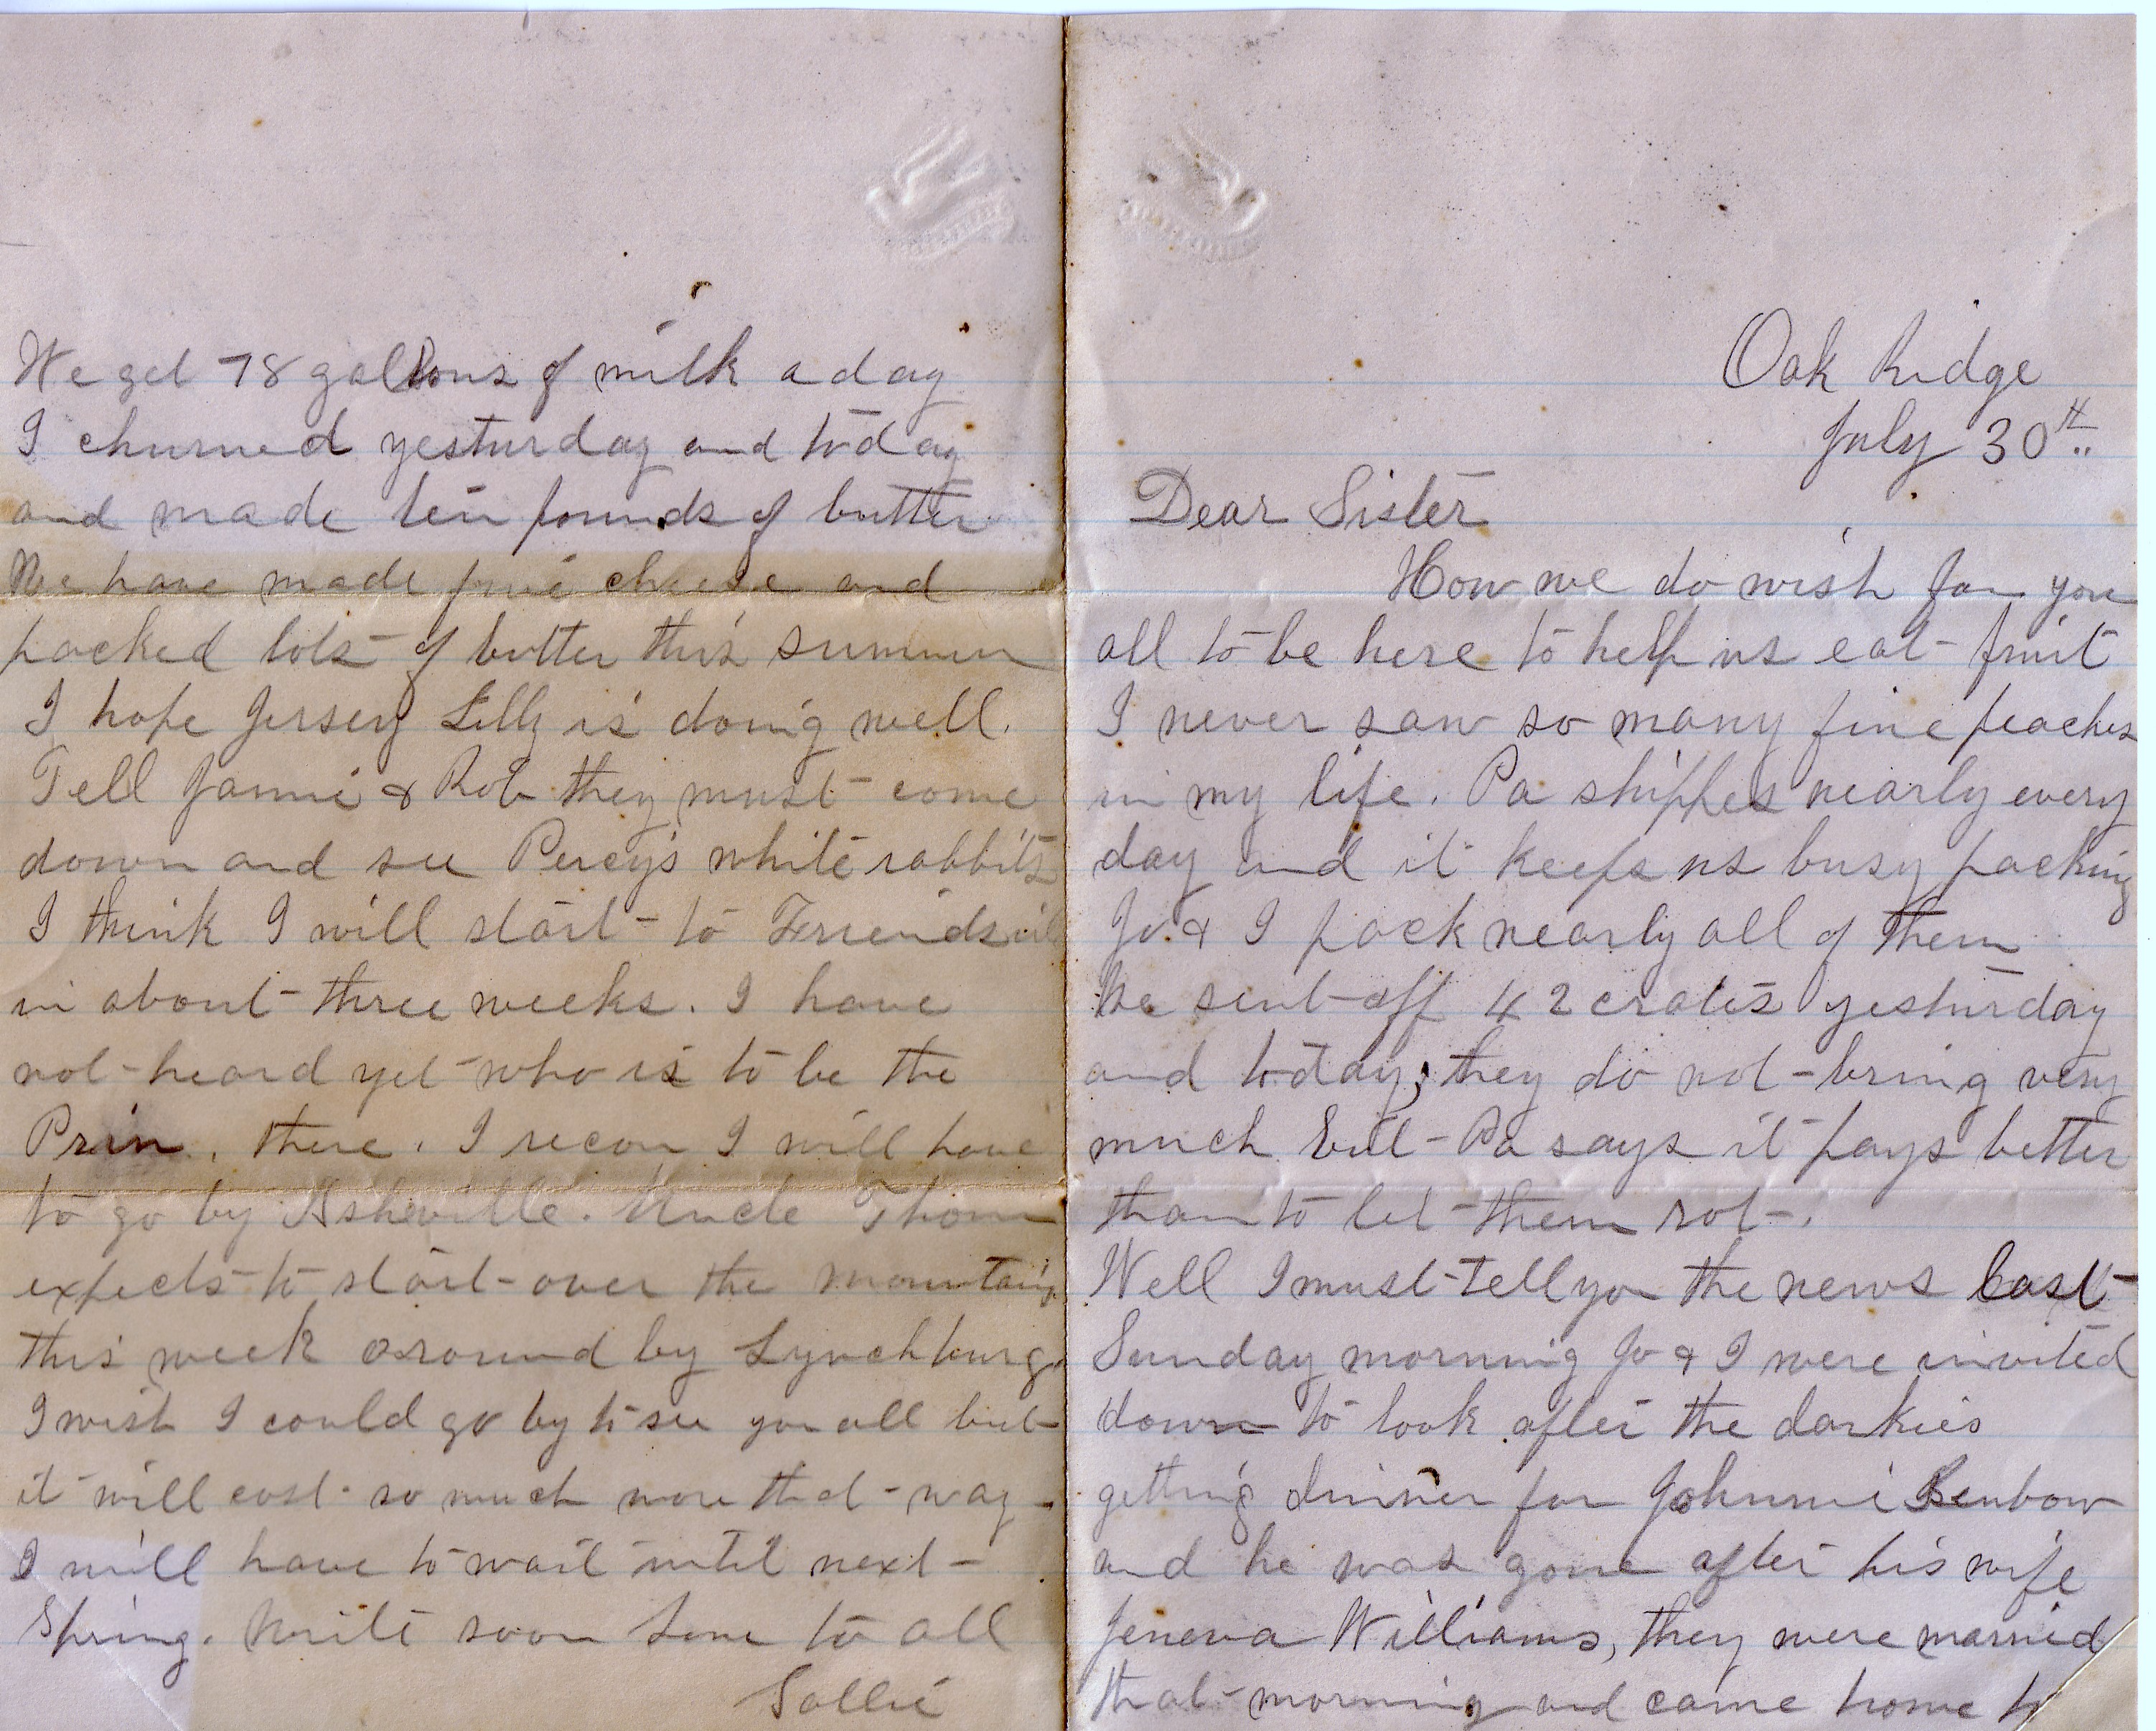 Oak Ridge
July 30th
Dear Sister
How we do wish for you
all to be here to help us eat fruit
I never saw so many fine peaches
in my life. Pa shippes nearly every
day and it keeps us busy packing
Jo & I pack nearly all of them
he sent off 42 crates yesturday
and today; they do not bring very
much but Pa says it pays better
than to let them rot.
Well I must tell you the news last
Sunday morning Jo & I were invited
down to look after the darkies
getting dinner for Johnnie Benbow
and he was gone after his wife
Jeneva Williams, they were married
that morning and came home to
We get 78 gallons of milk a day
I churned yesturday and today
and made ten pounds of butter
We have made five cheese and
packed lots of butter this summer
I hope Jersey Lilly is doing well.
Tell Jannie & Rob they must come
down and see Percy's white rabbits
I think I will start to
in about three weeks. I have
not heard yet who is to be the
Prin. there. I recon I will have
to go by Asheville. Uncle Thom
expects to start over the mountains
this week around by Lynchburg.
I wish I could go by to see you all but
it will cost so much more that way
I will have to wait until next
Spring. Write soon Love to all
Sallie